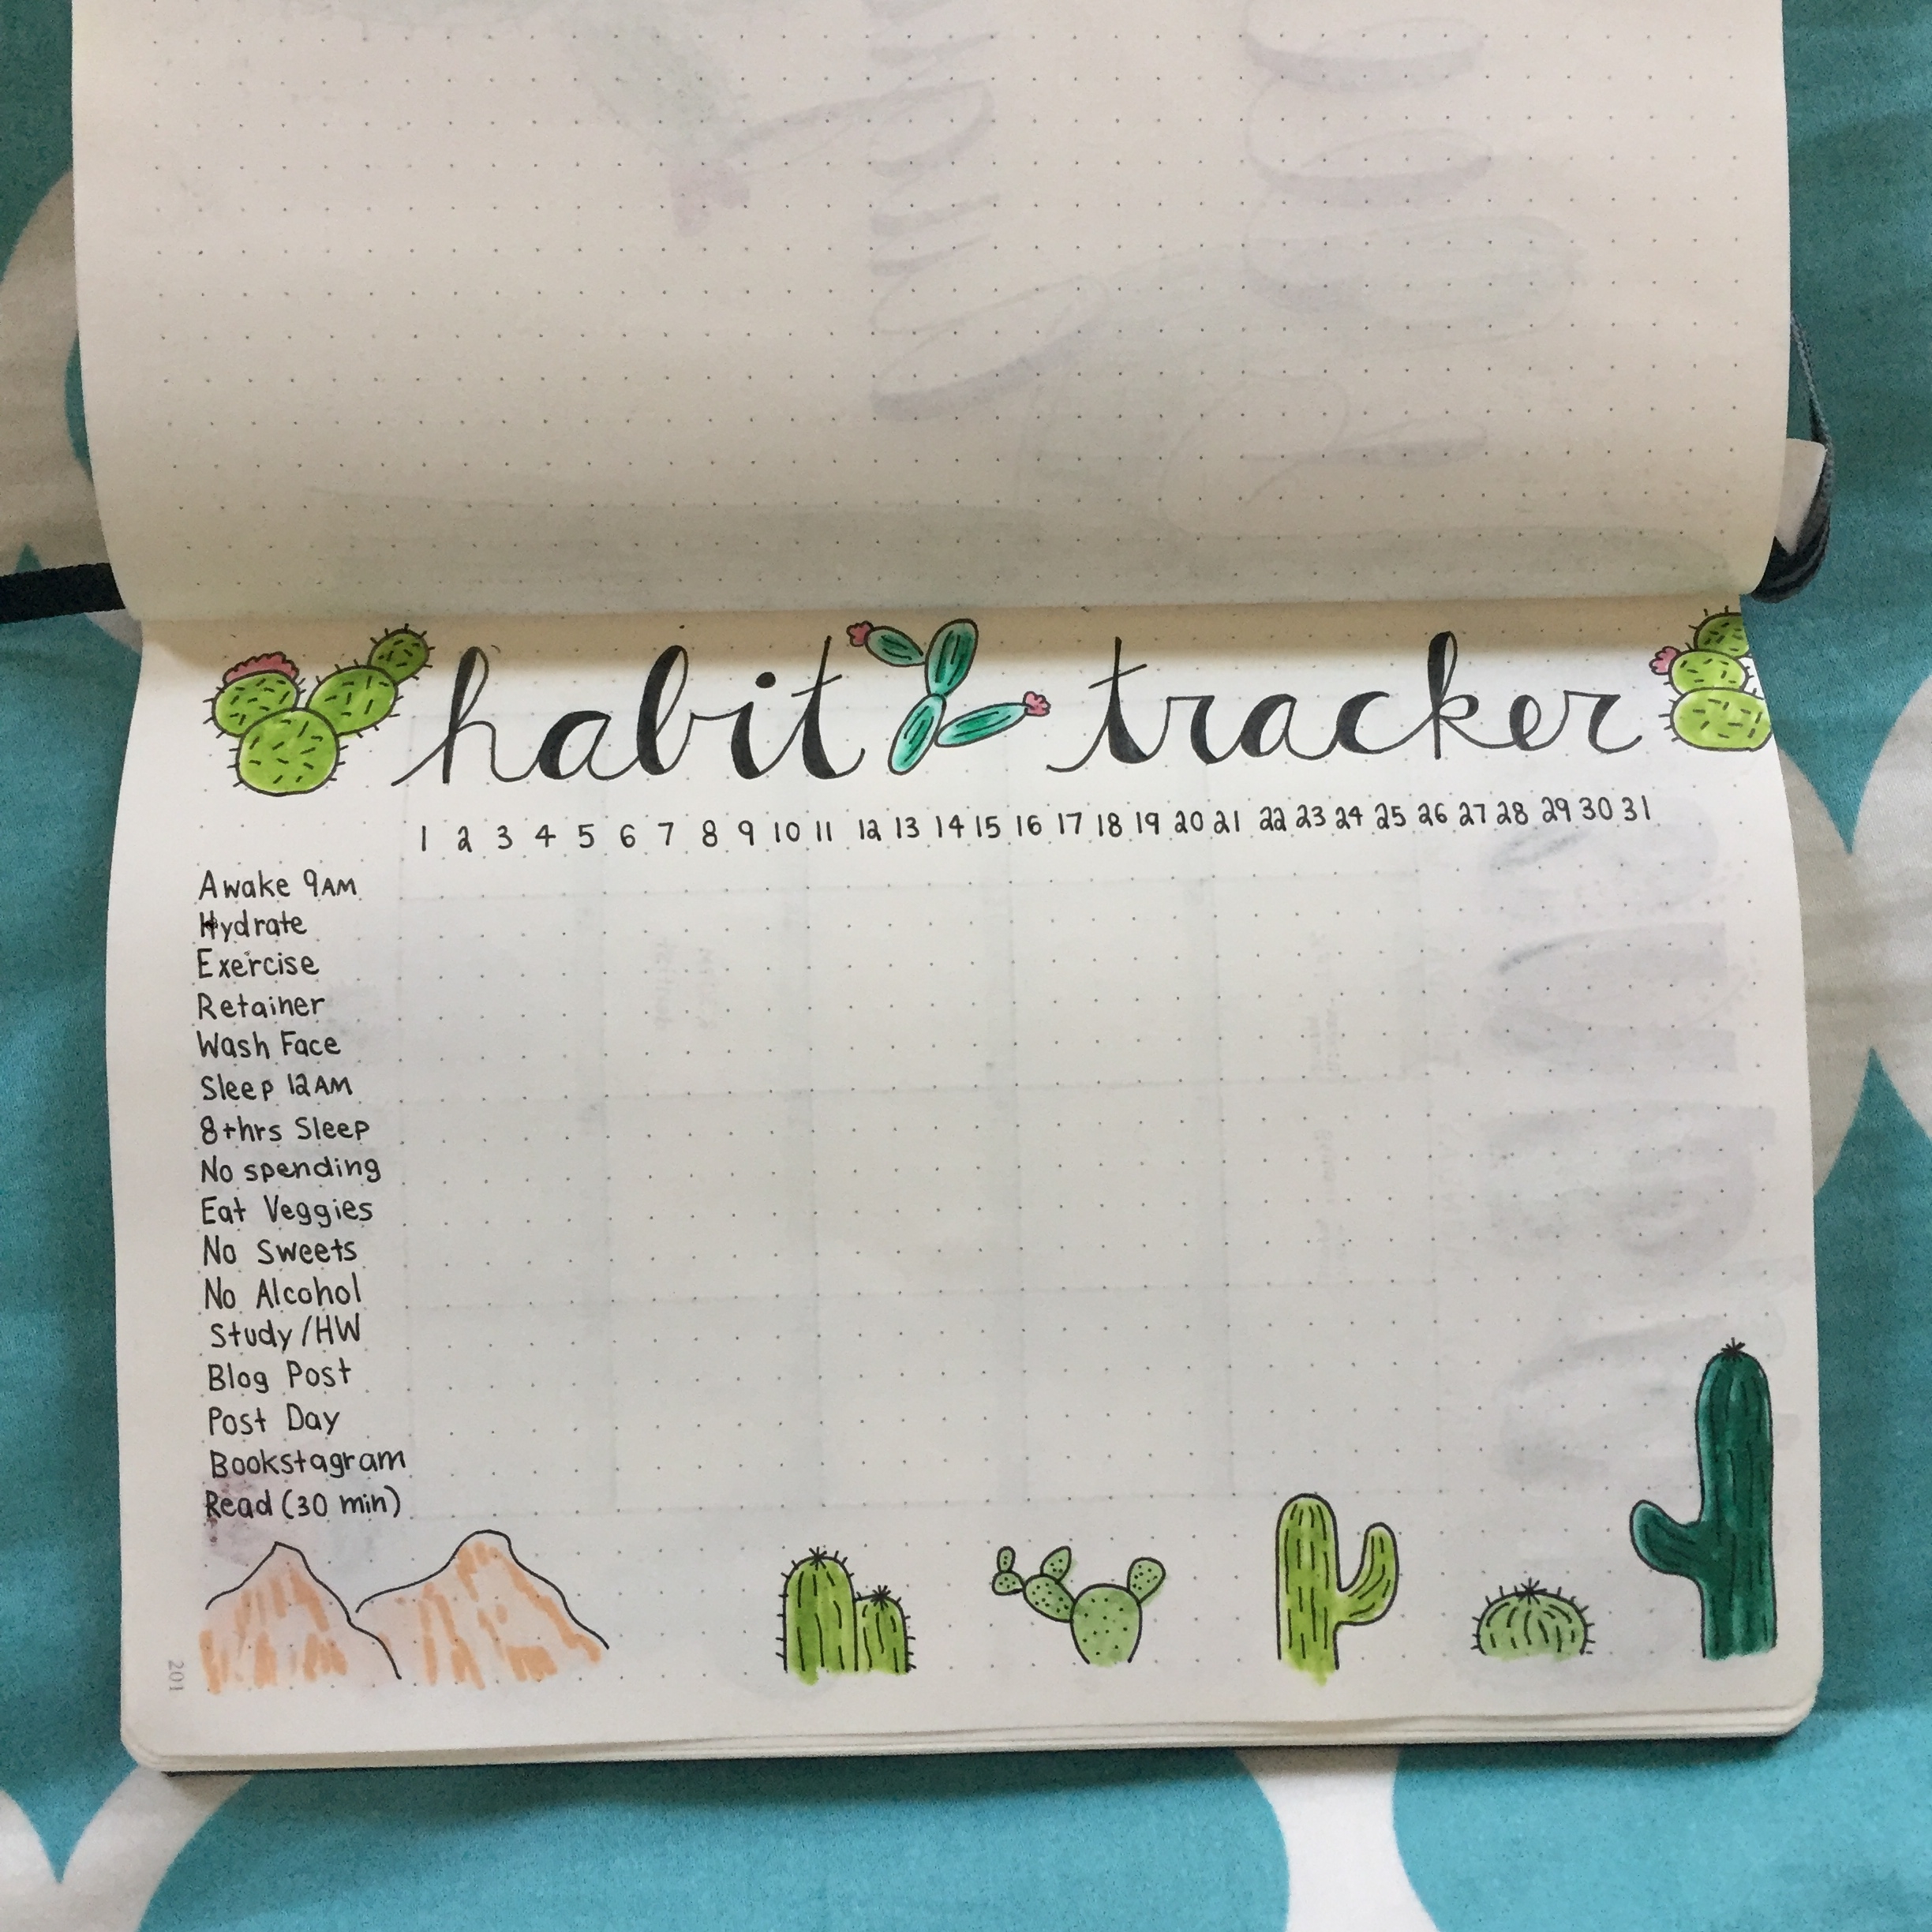 habit tracker
1 2 3 4 5 6 7 8 9 10 11 12 13 14 15 16 17 18 19 20 21 22 23 24 25 26 27 28 29 30 31
Awake 9AM
Hydrate
Exercise
Retainer
Wash Face
Sleep 12AM
8+hrs Sleep
No spending
Eat Veggies
No Sweets
No Alcohol
Study/HW
Blog Post
Post Day
Bookstagram
Read (30 min)
201